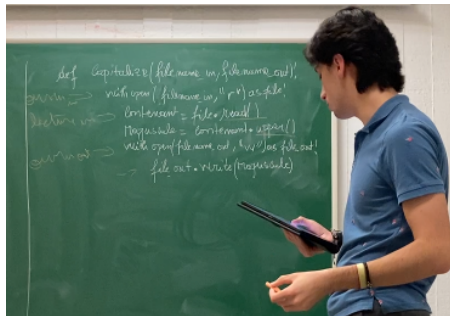 def capitalize(filename_in, filename_out):
with open(filename_in, "r") as file:
lecture contenant = file.read()
Majuscule = contenant.upper()
with open(filename_out, "w") as file_out:
file_out.write(Majuscule)